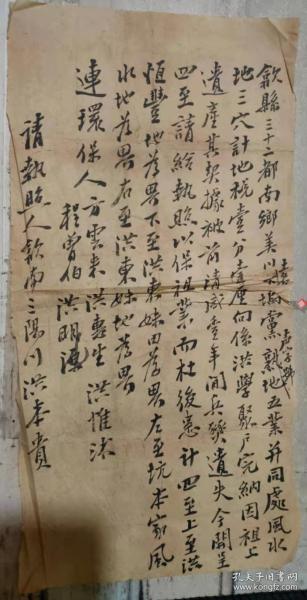 歙縣三十二都南鄉美川塝黨熟地五業并同處風水
地三穴計地稅壹分壹厘向係洪學聚戶完納因祖上
遺產其契據被前清咸豐年間兵燹遺失今開呈
四至請給執照以保祖業而杜後患計四至上至洪
恒豐地為界下至洪東妹田為界左至坑本家風
水地為界右至洪東妹地為界
連環保人方雲來 洪惠生 洪惟沐
程曾伯 洪明德
請執照人歙南三陽川洪本貴
孔夫子旧书网